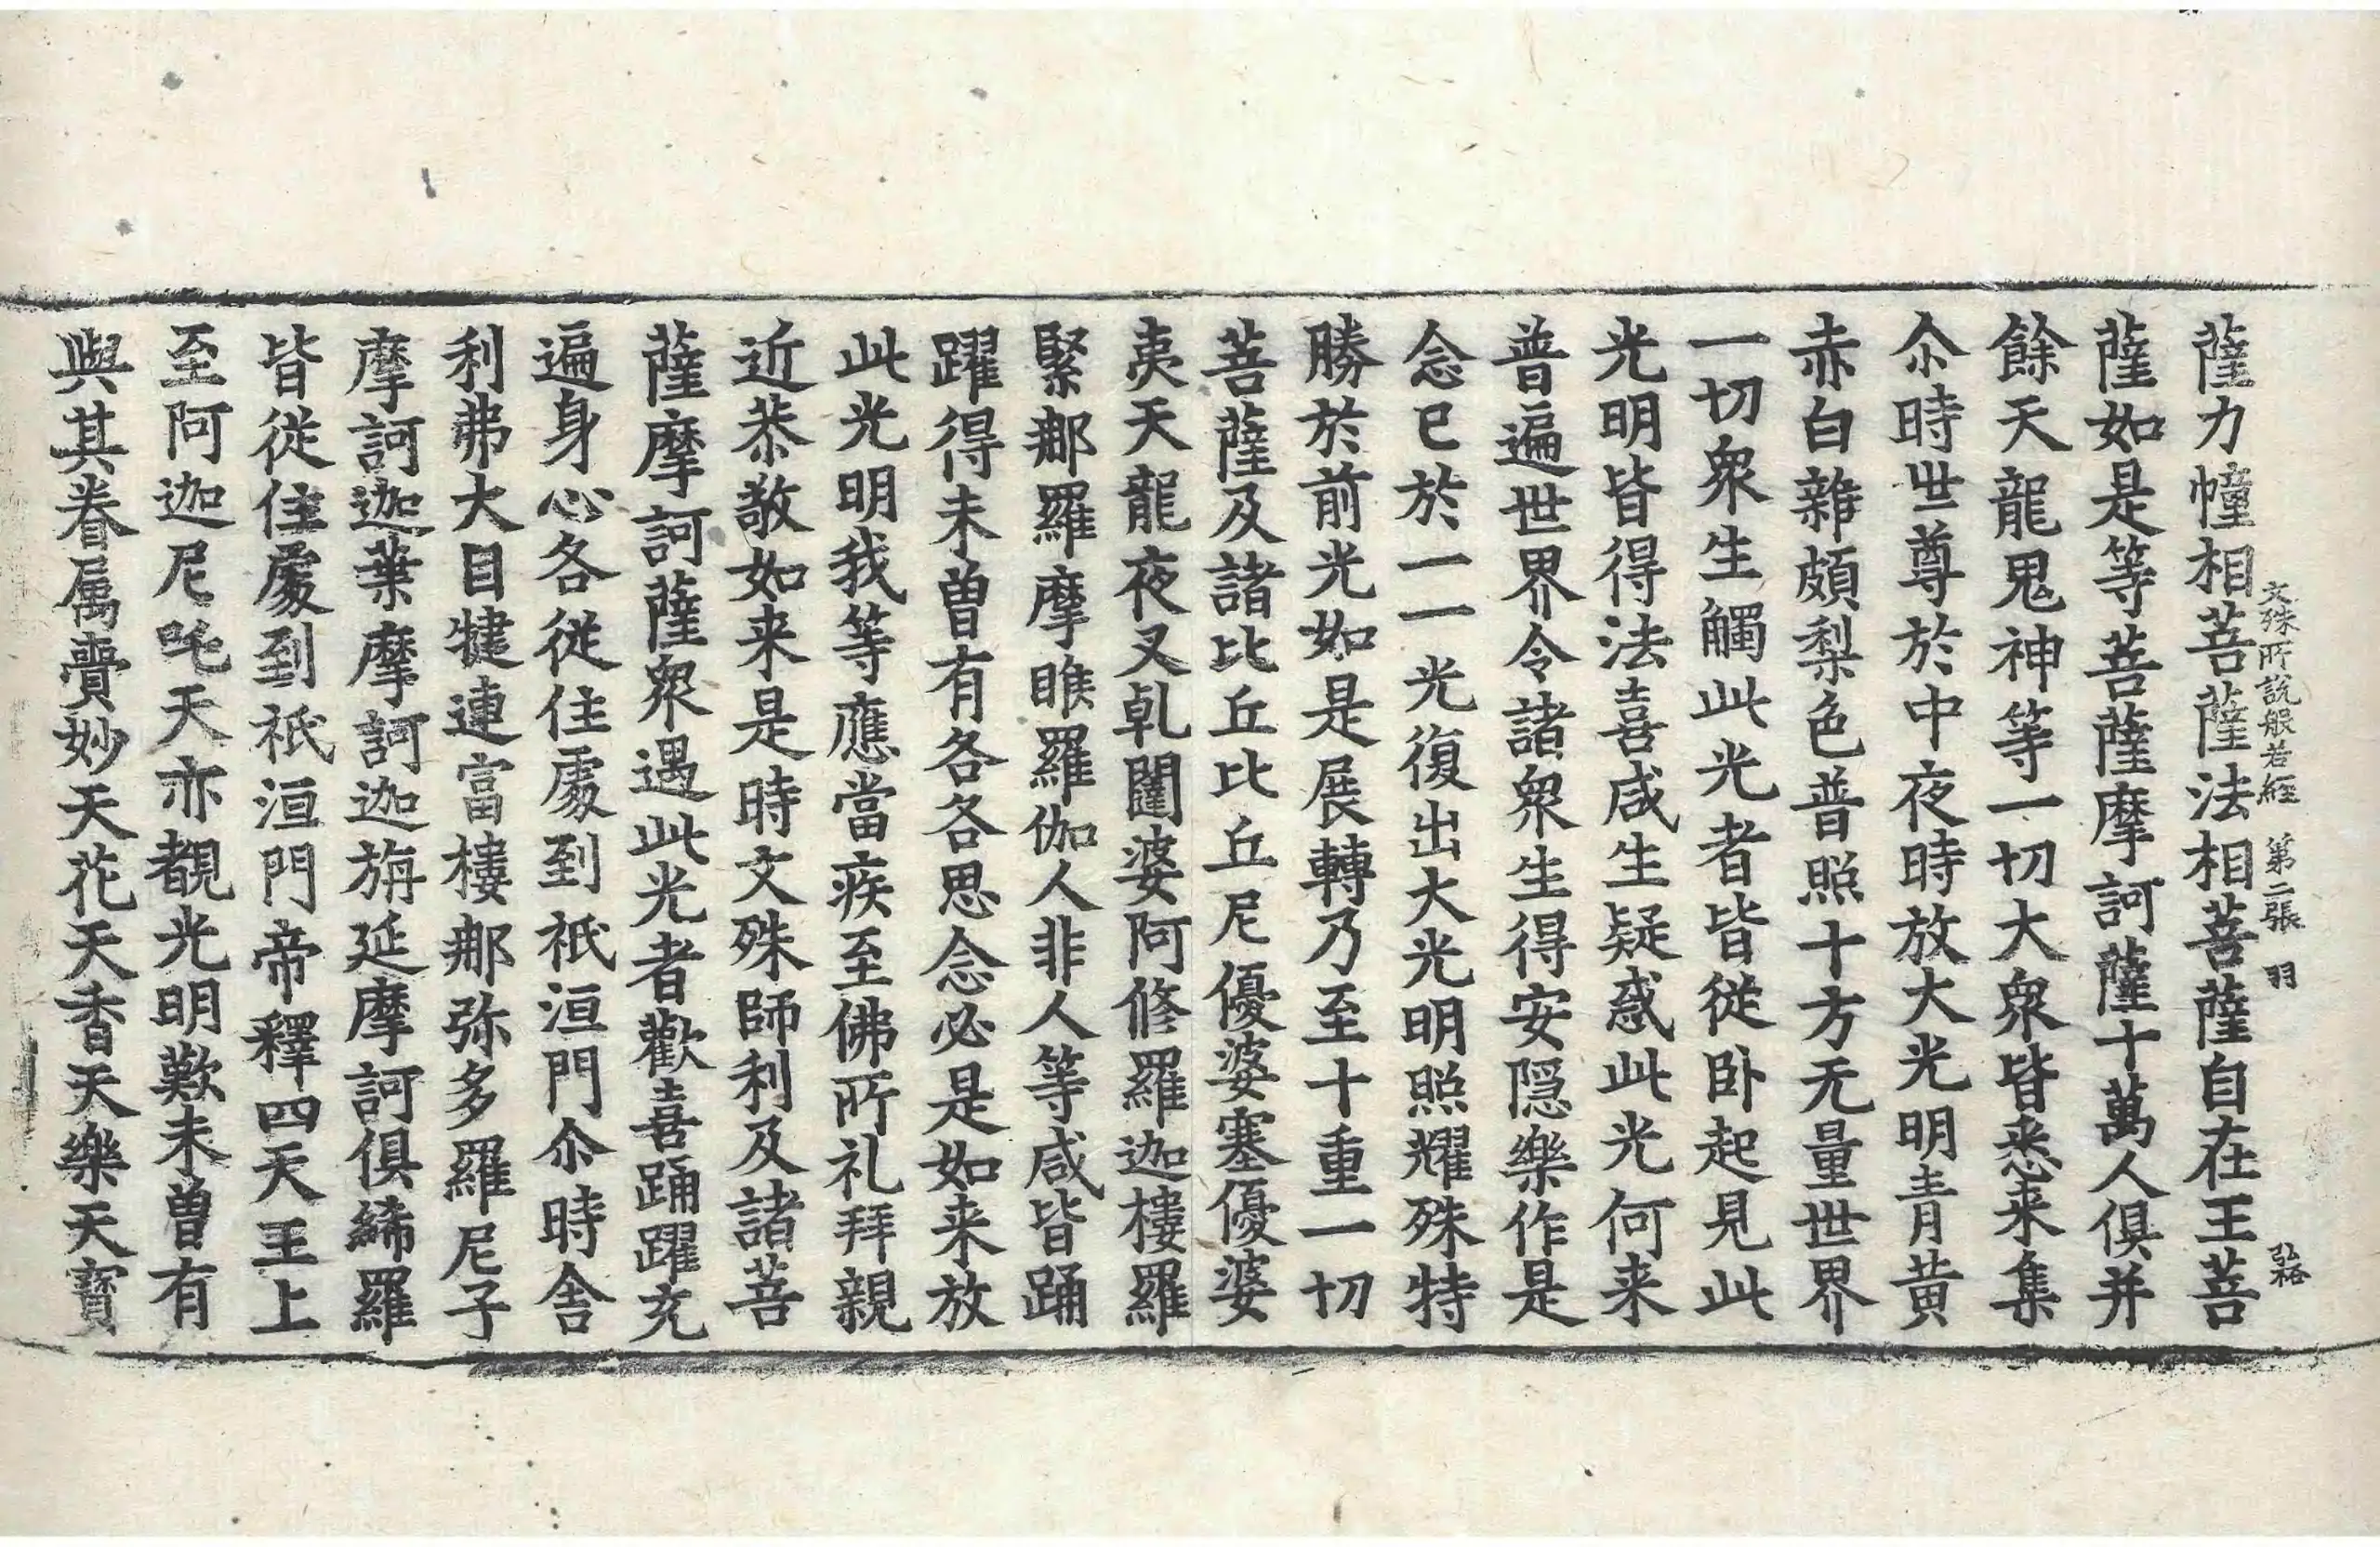 文殊所說般若經 第二張 羽 弘裕
薩力幢相菩薩法相菩薩自在王菩
薩如是等菩薩摩訶薩十萬人俱并
餘天龍鬼神等一切大衆皆悉来集
尒時世尊於中夜時放大光明青黄
赤白雜頗梨色普照十方无量世界
一切衆生觸此光者皆從卧起見此
光明皆得法喜咸生疑惑此光何来
普遍世界令諸衆生得安隠樂作是
念已於一一光復出大光明照耀殊特
勝於前光如是展轉乃至十重一切
菩薩及諸比丘比丘尼優婆塞優婆
夷天龍夜叉乹闥婆阿脩羅迦樓羅
緊那羅摩睺羅伽人非人等咸皆踊
躍得未曽有各各思念必是如来放
此光明我等應當疾至佛所礼拜親
近恭敬如来是時文殊師利及諸菩
薩摩訶薩衆遇此光者歡喜踊躍充
遍身心各從住處到祇洹門尒時舍
利弗大目揵連富樓那弥多羅尼子
摩訶迦葉摩訶迦旃延摩訶俱絺羅
皆從住處到祇洹門帝釋四天王上
至阿迦尼吒天亦覩光明歎未曽有
與其眷属賷妙天花天香天樂天寳